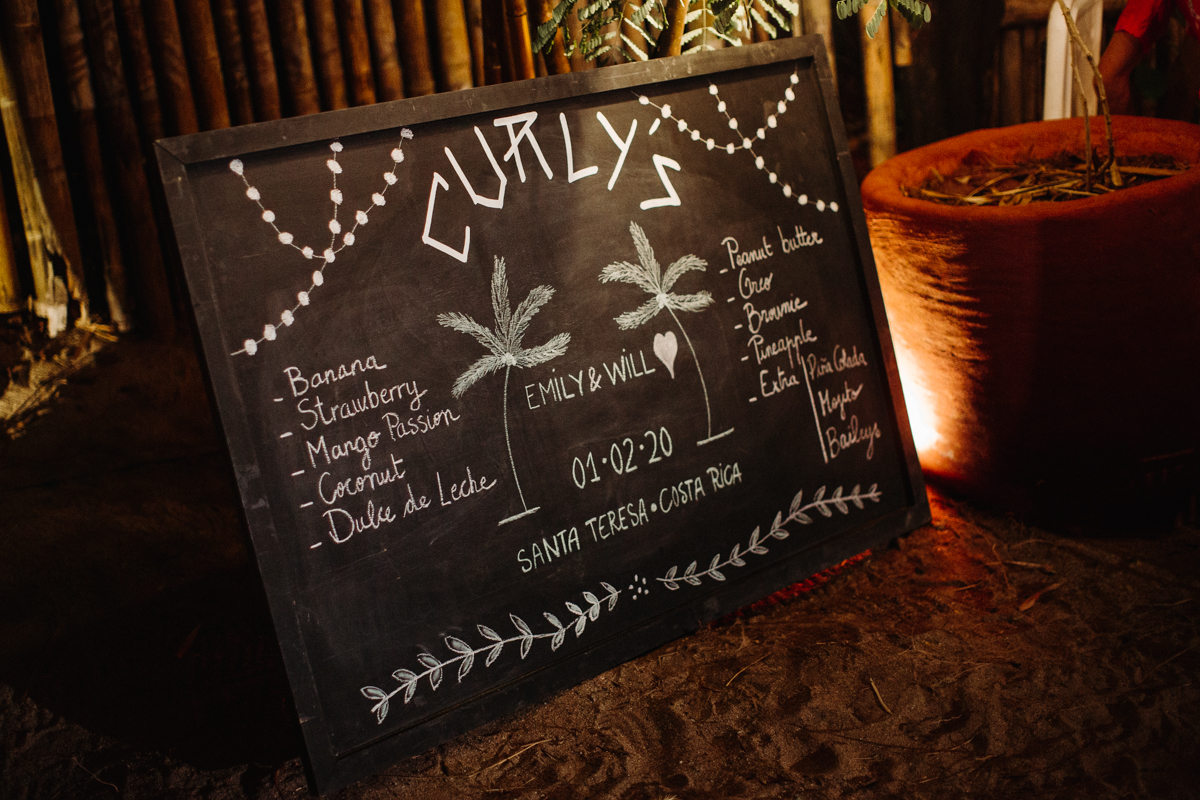 CURLY'S
- Banana
- Strawberry
- Mango Passion
- Coconut
- Dulce de Leche
EMILY & WILL
01·02·20
SANTA TERESA • COSTA RICA
- Peanut butter
- Oreo
- Brownie
- Pineapple
- Extra
Piña Colada
Mojito
Baileys